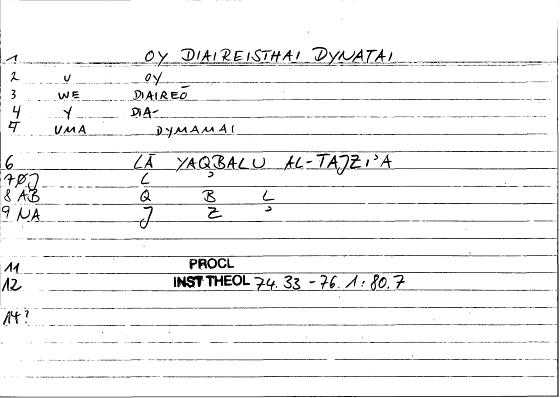 1 OY DIAIREISTHAI DYNATAI
2 U OY
3 WE DIAIREŌ
4 Y DIA-
5 UMA DYMAMAI
6 LĀ YAQBALU AL-TAJZI'A
7 ØJ L '
8 AB Q B L
9 NA J Z '
11 PROCL
12 INST THEOL 74.33 - 76.1 : 80.7
14?